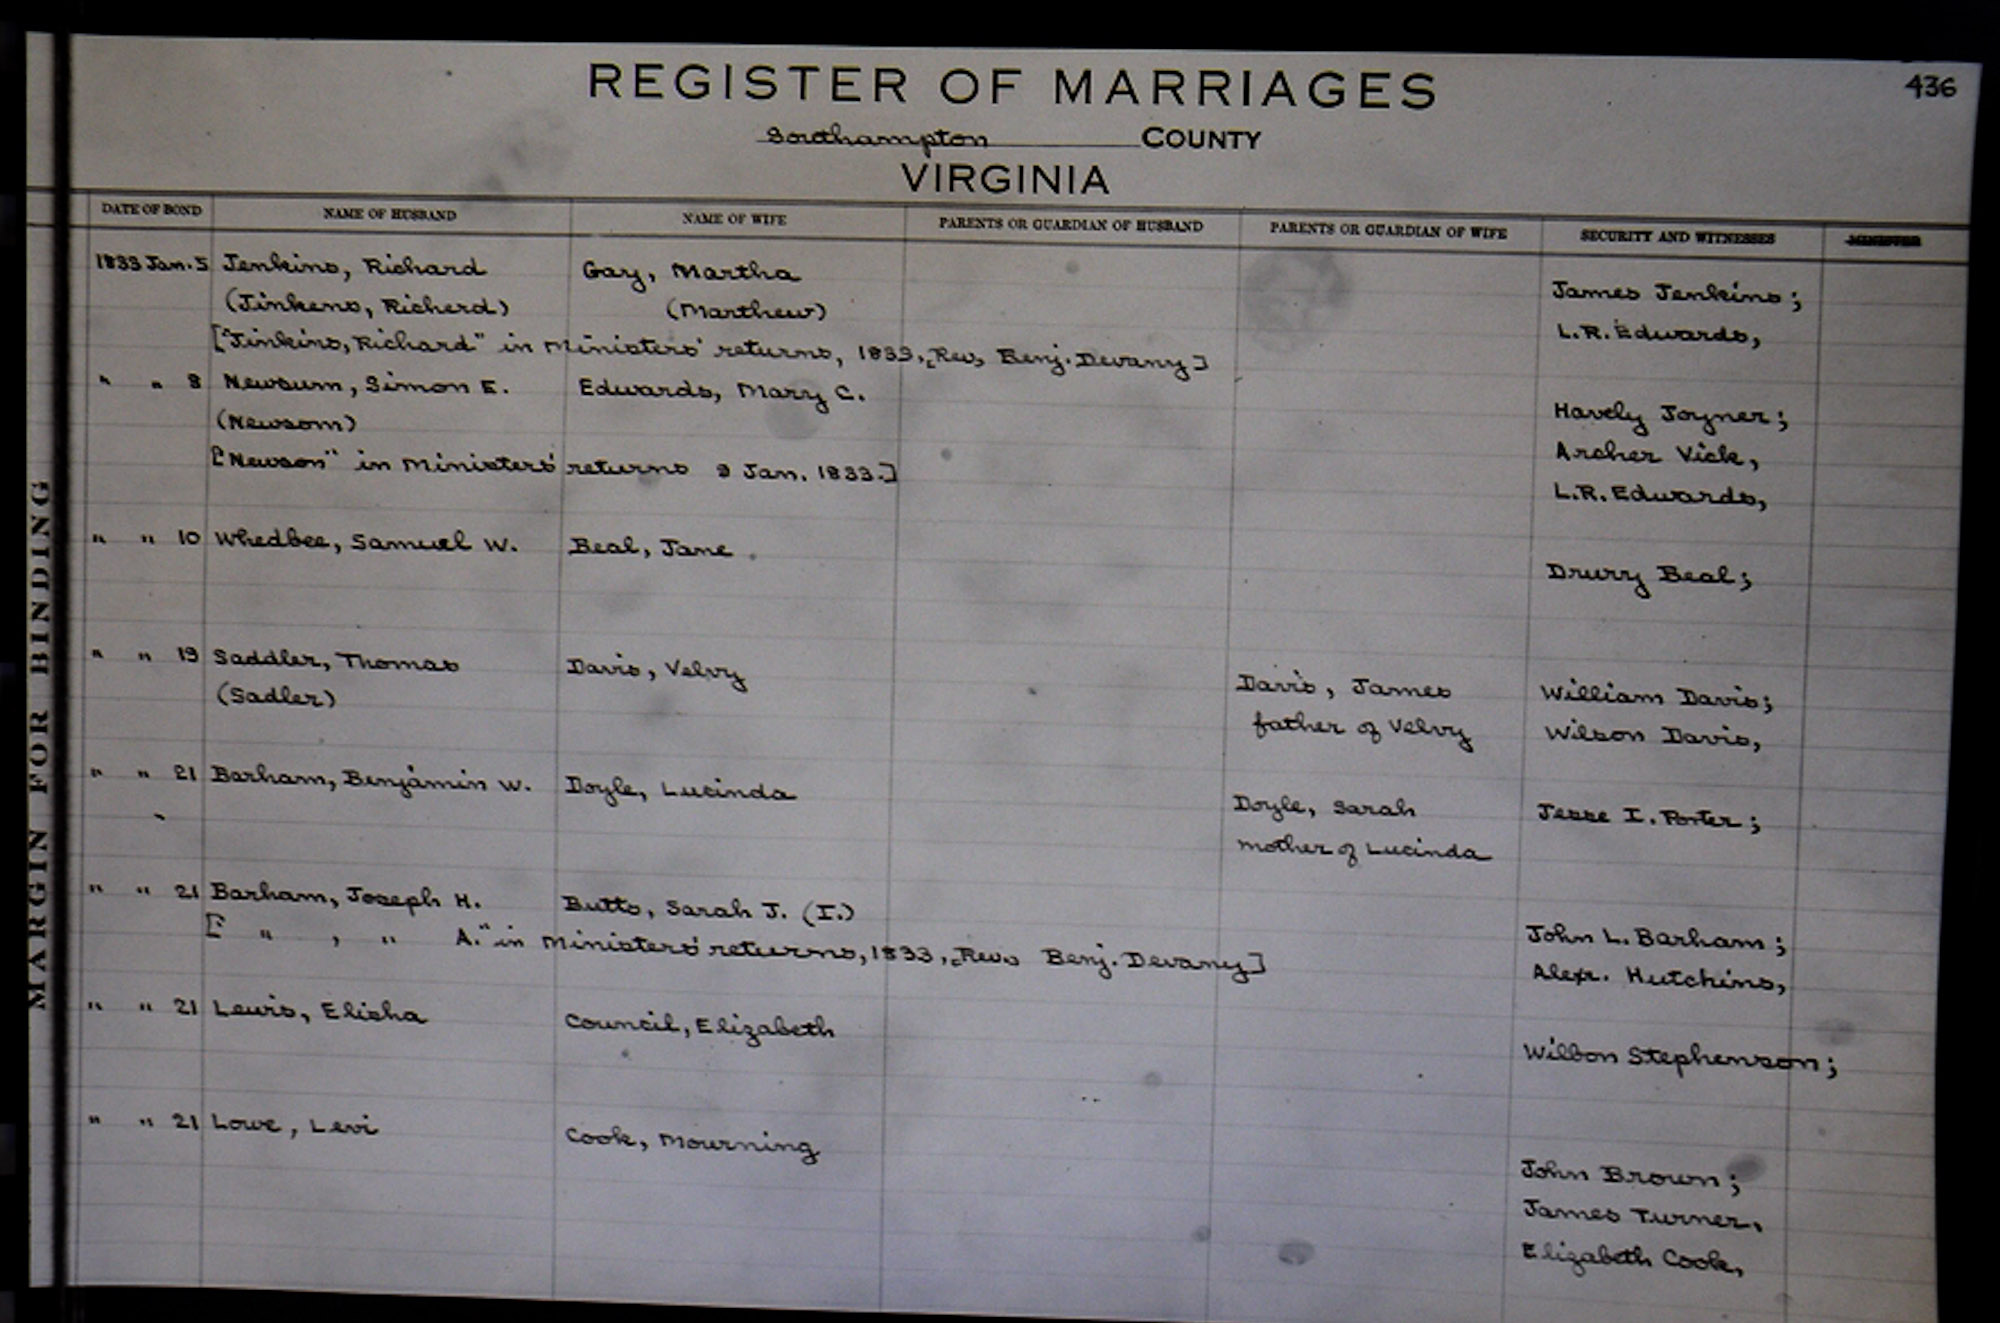 436
REGISTER OF MARRIAGES
Southampton COUNTY
VIRGINIA
DATE OF BOND NAME OF HUSBAND NAME OF WIFE PARENTS OR GUARDIAN OF HUSBAND PARENTS OR GUARDIAN OF WIFE SECURITY AND WITNESSES MINISTER
1833 Jan. 5 Jenkins, Richard Gay, Martha James Jenkins;
(Jinkens, Richerd) (Marthew) L.R. Edwards,
["Jinkins, Richard" in Ministers' returns, 1833, [Rev. Benj. Devany]
" " 8 Newsum, Simon E. Edwards, Mary C. Havely Joyner;
(Newsom) Archer Vick,
["Newson" in Ministers' returns 9 Jan. 1833.] L.R. Edwards,
" " 10 Whedbee, Samuel W. Beal, Jane Drury Beal;
" " 19 Saddler, Thomas Davis, Velvy Davis, James William Davis;
(Sadler) father of Velvy Wilson Davis,
" " 21 Barham, Benjamin W. Doyle, Lucinda Doyle, Sarah Jesse I. Porter;
mother of Lucinda
" " 21 Barham, Joseph H. Butts, Sarah J. (I.) John L. Barham;
[" " , " A." in Ministers' returns, 1833, [Rev. Benj. Devany] Alexr. Hutchins,
" " 21 Lewis, Elisha Council, Elizabeth Wilson Stephenson;
" " 21 Lowe, Levi Cook, Mourning John Brown;
James Turner,
Elizabeth Cook,
MARGIN FOR BINDING